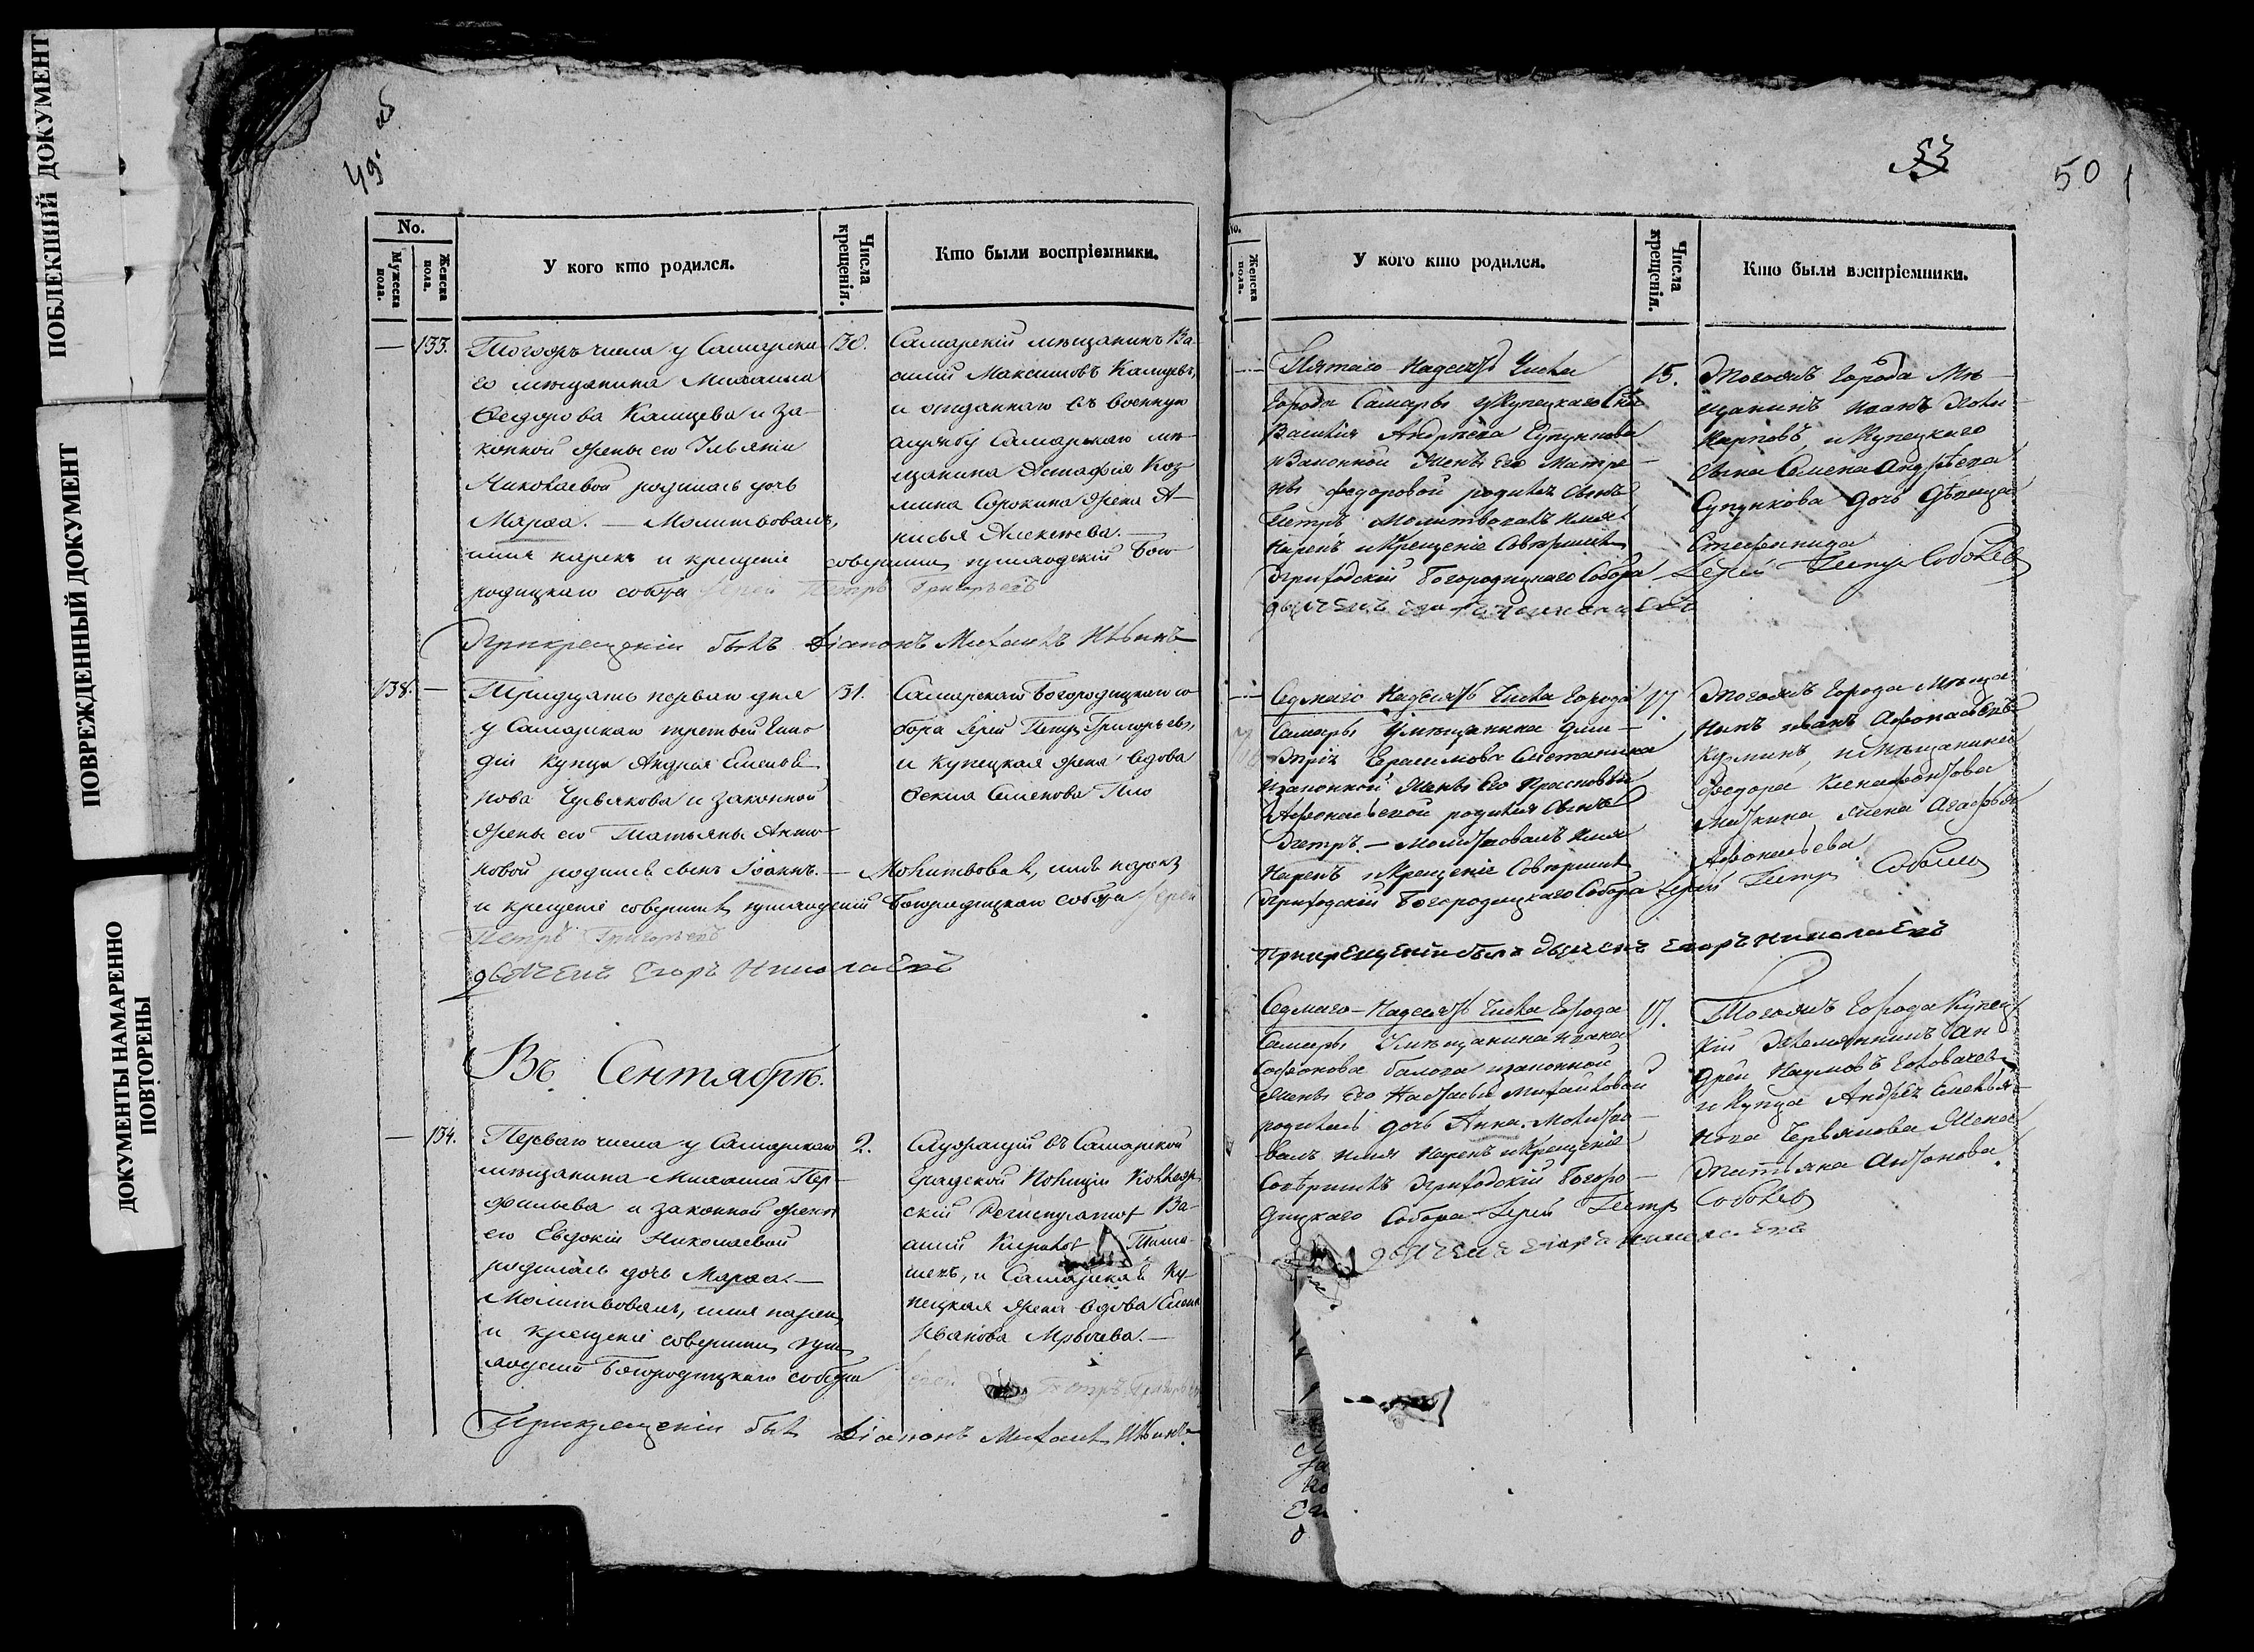 ПОБЛЕКШИЙ ДОКУМЕНТ
ПОВРЕЖДЕННЫЙ ДОКУМЕНТ
ДОКУМЕНТЫ НАМАРЕННО
ПОВТОРЕНЫ
49. об
No.
Мужеска пола.
Женска пола.
У кого кто родился.
Числа крещенія.
Кто были воспріемники.
— 133.
Тогожъ числа у Самарска
го мещанина Михаила
Федорова Камцева и за-
конной жены его Ульяніи
Николаевой родилась дочь
Марѳа. — Молитвовалъ,
имя нарекъ и крещеніе совершилъ приходскій Бого
родицкаго собора Іерей Петръ Григорьевъ
30.
Самарскій мещанинъ Ва-
силій Максимовъ Камцевъ,
и отданнаго въ военную
службу Самарскаго ме-
щанина Астафія Коз
мина Сорокина жена А-
нисья Алексеева. —
При крещеніи былъ Діаконъ Михаилъ Ильинъ
138. —
Тридцать перваго дня
у Самарскаго третьей гиль
діи купца Андрея Емелья
нова Червякова и законной
жены его Татьяны Анто-
новой родился сынъ Іоаннъ. — Молитвовалъ, имя нарекъ
и крещеніе совершилъ приходскій Богородицкаго собора Іерей
Петръ Григорьевъ
31.
Самарскаго Богородицкаго со
бора Іерей Петръ Григорьевъ,
и купецкая жена вдова
Фекла Семенова
дьячекъ Егоръ Николаевъ
Въ Сентябрѣ.
— 134.
Перваго числа у Самарскаго
мещанина Михаила Пер-
фильева и законной жены
его Евдокіи Николаевой
родилась дочь Марѳа. —
Молитвовалъ, имя нарекъ
и крещеніе совершилъ при
ходскій Богородицкаго собора
2.
Служащій въ Самарской
Градской Полиціи Коллеж
скій Регистраторъ Ва-
силій
и Самарская Ку-
пецкая жена вдова
Иванова
Петръ Григорьевъ
При крещеніи былъ Діаконъ Михаилъ Ильинъ
53
50
No.
Женска пола.
У кого кто родился.
Числа крещенія.
Кто были воспріемники.
Пятаго надесять числа
города Самары у Купецкаго сына
Василія Андреева Супункова
и Законной Жены Его Матре-
ны Федоровой родился Сынъ
Петръ Молитвовалъ имя
Нарекъ и Крещеніе Совершилъ
Приходскій Богородицкаго Собора Іерей Петръ Соболев
15.
Тогожъ Города Ме-
щанинъ Иванъ
Карповъ, и Купецкаго
сына Семена Андреева
Супункова дочь Девица
Степонида
Седмаго надесять числа Города
Самары У мещанина Дми-
трія Герасимова
и законной Жены Его Прасковьи
Афонасьевой родился Сынъ
Петръ. — Молитвовалъ имя
Нарекъ и Крещеніе Совершилъ
Приходскій Богородицкаго Собора Іерей Петръ Соболев
17.
Тогожъ Города Меща
нинъ Иванъ Афонасьевъ
Кузминъ, и Мещанина
Федора Ксенофонтова
жена Агафья
Афонасьева
При крещеніи былъ дьячекъ Егоръ Николаевъ
Седмаго-Надесять Числа Города
Самары У мещанина Ивана
и законной
Жены Его Настасьи Михайловой
родилась дочь Анна. Молитво-
валъ имя Нарекъ и Крещеніе
Совершилъ Приходскій Богоро-
дицкаго Собора Іерей Петръ Соболев
17.
Тогожъ Города Купец
кій Племянникъ Ан
дрей Наумовъ
и Купца Андрея Емелья-
нова Червякова Жена
Татьяна Антонова
дьячекъ Егоръ Николаевъ